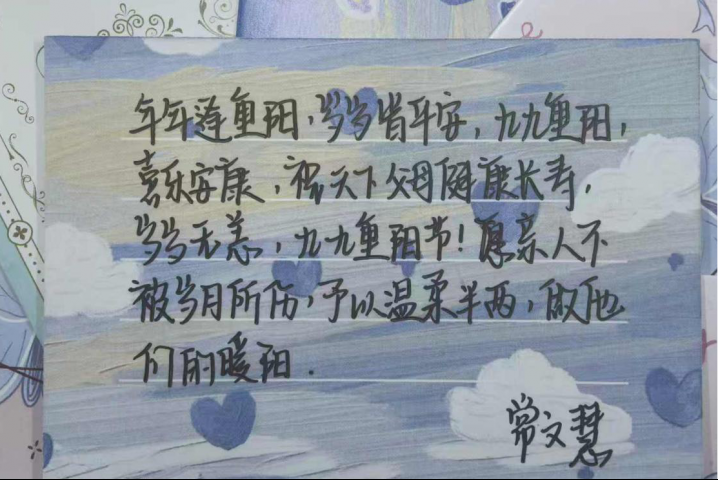 年年逢重阳,岁岁皆平安,九九重阳,
喜乐安康,祝天下父母健康长寿,
岁岁无恙,九九重阳节!愿亲人不
被岁月所伤,予以温柔半两,做他
们的暖阳.
常文慧